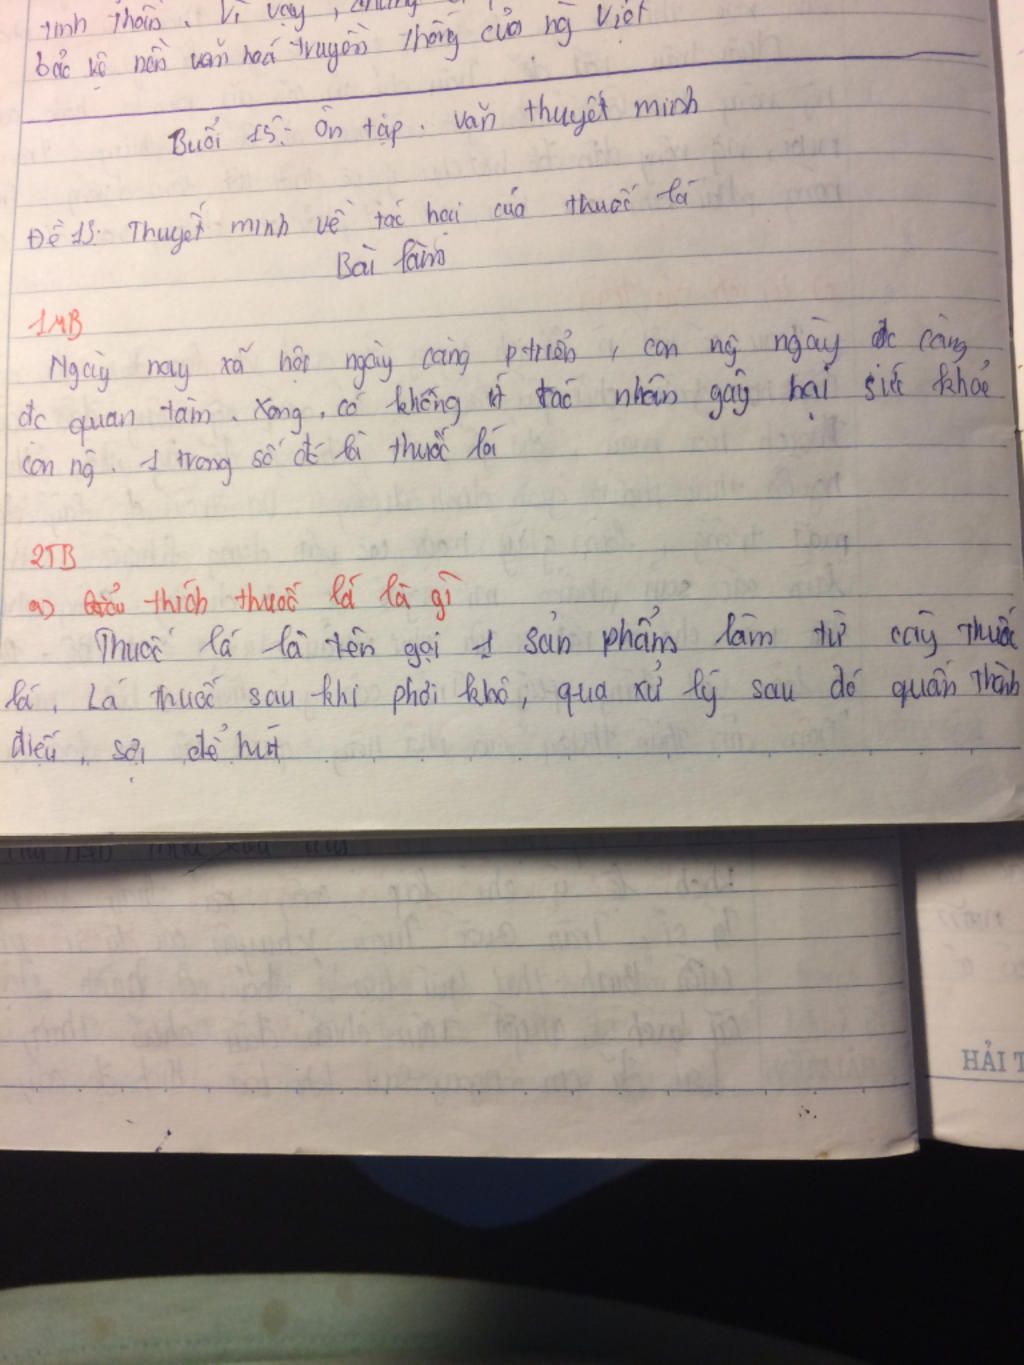 tinh thần. Vì vậy, chúng
bảo vệ nền văn hoá truyền thống của ng Việt
Buổi 15: Ôn tập. Văn thuyết minh
Đề 15: Thuyết minh về tác hại của thuốc lá
Bài làm
1MB
Ngày nay xã hội ngày càng ptriển, con ng ngày đc càng
đc quan tâm. Xong, có không ít tác nhân gây hại sức khoẻ
con ng. 1 trong số đó là thuốc lá
2TB
a) thích thuốc lá là gì
Thuốc lá là tên gọi 1 sản phẩm làm từ cây thuốc
lá. Lá thuốc sau khi phơi khô, qua xử lý sau đó quấn thành
điếu, sợi để hút
HẢI T